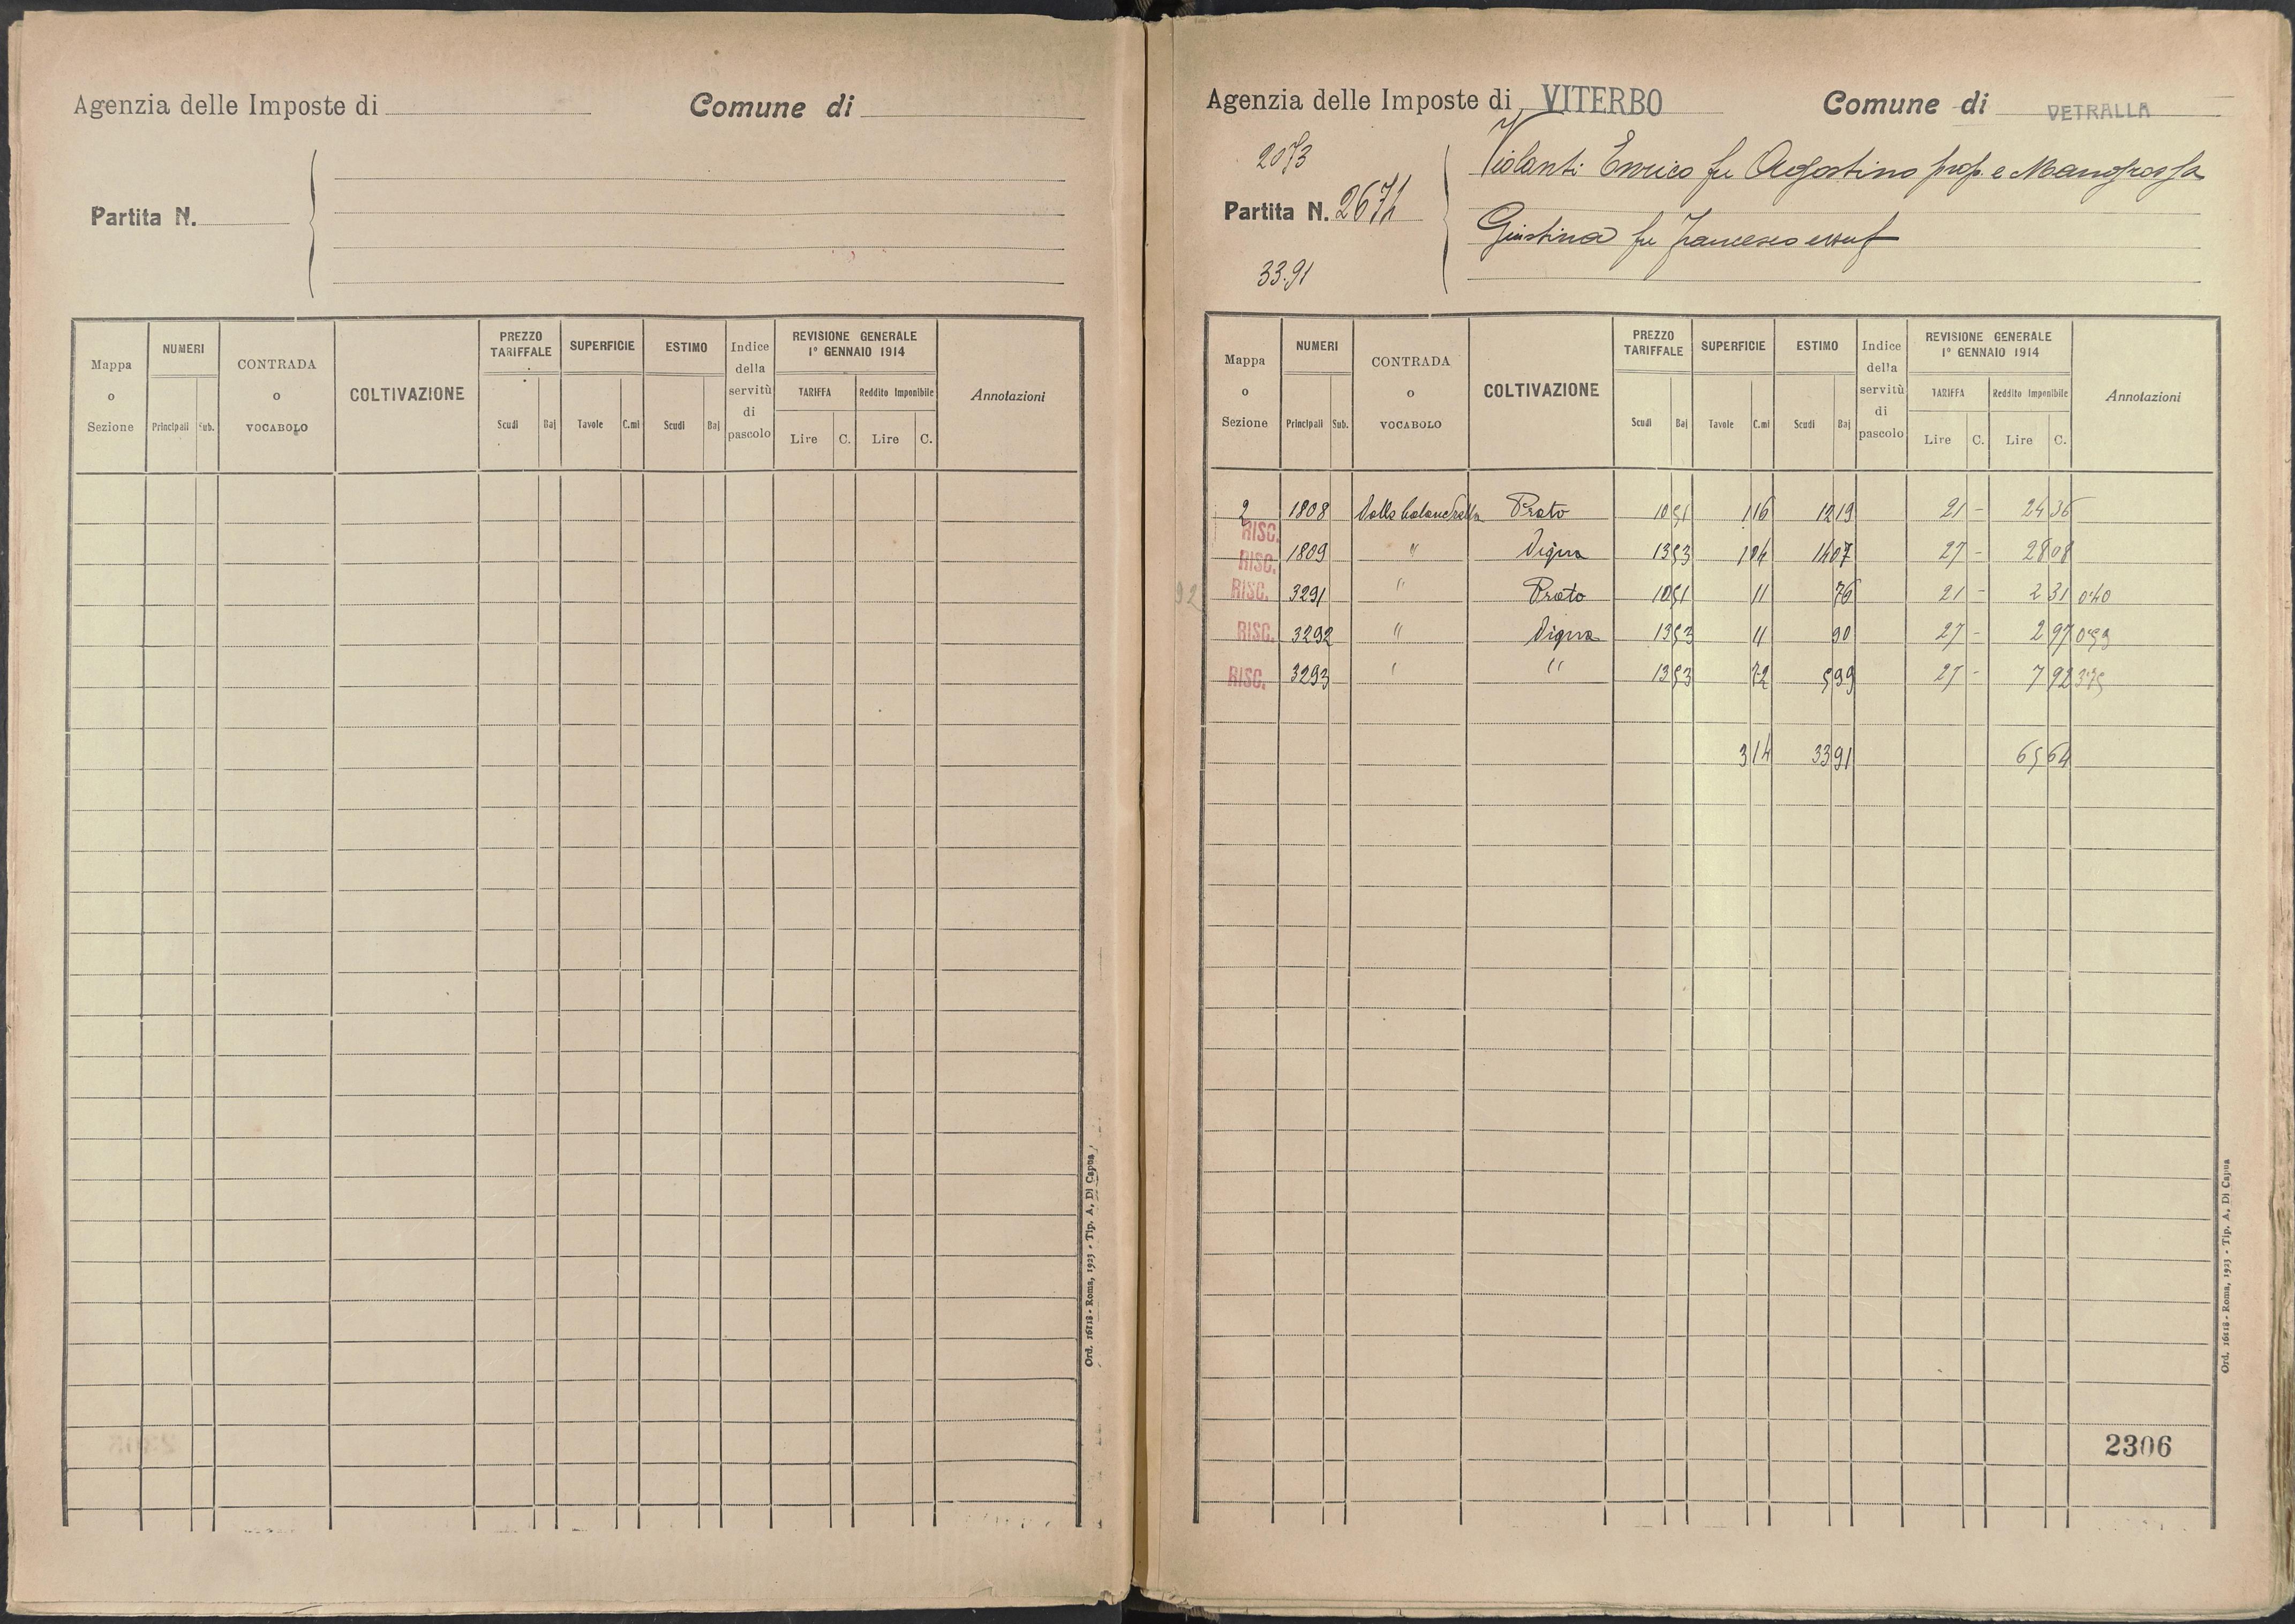 Agenzia delle Imposte di
Comune di
Partita N.
Mappa o Sezione
NUMERI
Principali
Sub.
CONTRADA o VOCABOLO
COLTIVAZIONE
PREZZO TARIFFALE
Scudi
Baj
SUPERFICIE
Tavole
C.mi
ESTIMO
Scudi
Baj
Indice della servitù di pascolo
REVISIONE GENERALE
1° GENNAIO 1914
TARIFFA
Reddito Imponibile
Lire C. Lire C.
Annotazioni
Ord. 16118 - Roma, 1923 - Tip. A. Di Capua
Agenzia delle Imposte di VITERBO
Comune di VETRALLA
2073
Partita N. 2674
33.91
Violanti Enrico fu Agostino prop. e
Giustina fu Francesco usuf
Mappa o Sezione
NUMERI
Principali
Sub.
CONTRADA o VOCABOLO
COLTIVAZIONE
PREZZO TARIFFALE
Scudi
Baj
SUPERFICIE
Tavole
C.mi
ESTIMO
Scudi
Baj
Indice della servitù di pascolo
REVISIONE GENERALE
1° GENNAIO 1914
TARIFFA
Reddito Imponibile
Lire C. Lire C.
Annotazioni
2 1808 Prato 10 51 1 16 12 19 21 - 24 36
RISC.
1809 " Vigna 13 53 1 04 14 07 27 - 28 08
RISC.
RISC. 3291 " Prato 10 51 11 76 21 - 2 31 0.40
RISC. 3292 " Vigna 13 53 11 90 27 - 2 97
RISC. 3293 " " 13 53 72 5 99 27 - 7 92
3 14 33 91 65 64
2306
Ord. 16118 - Roma, 1923 - Tip. A. Di Capua